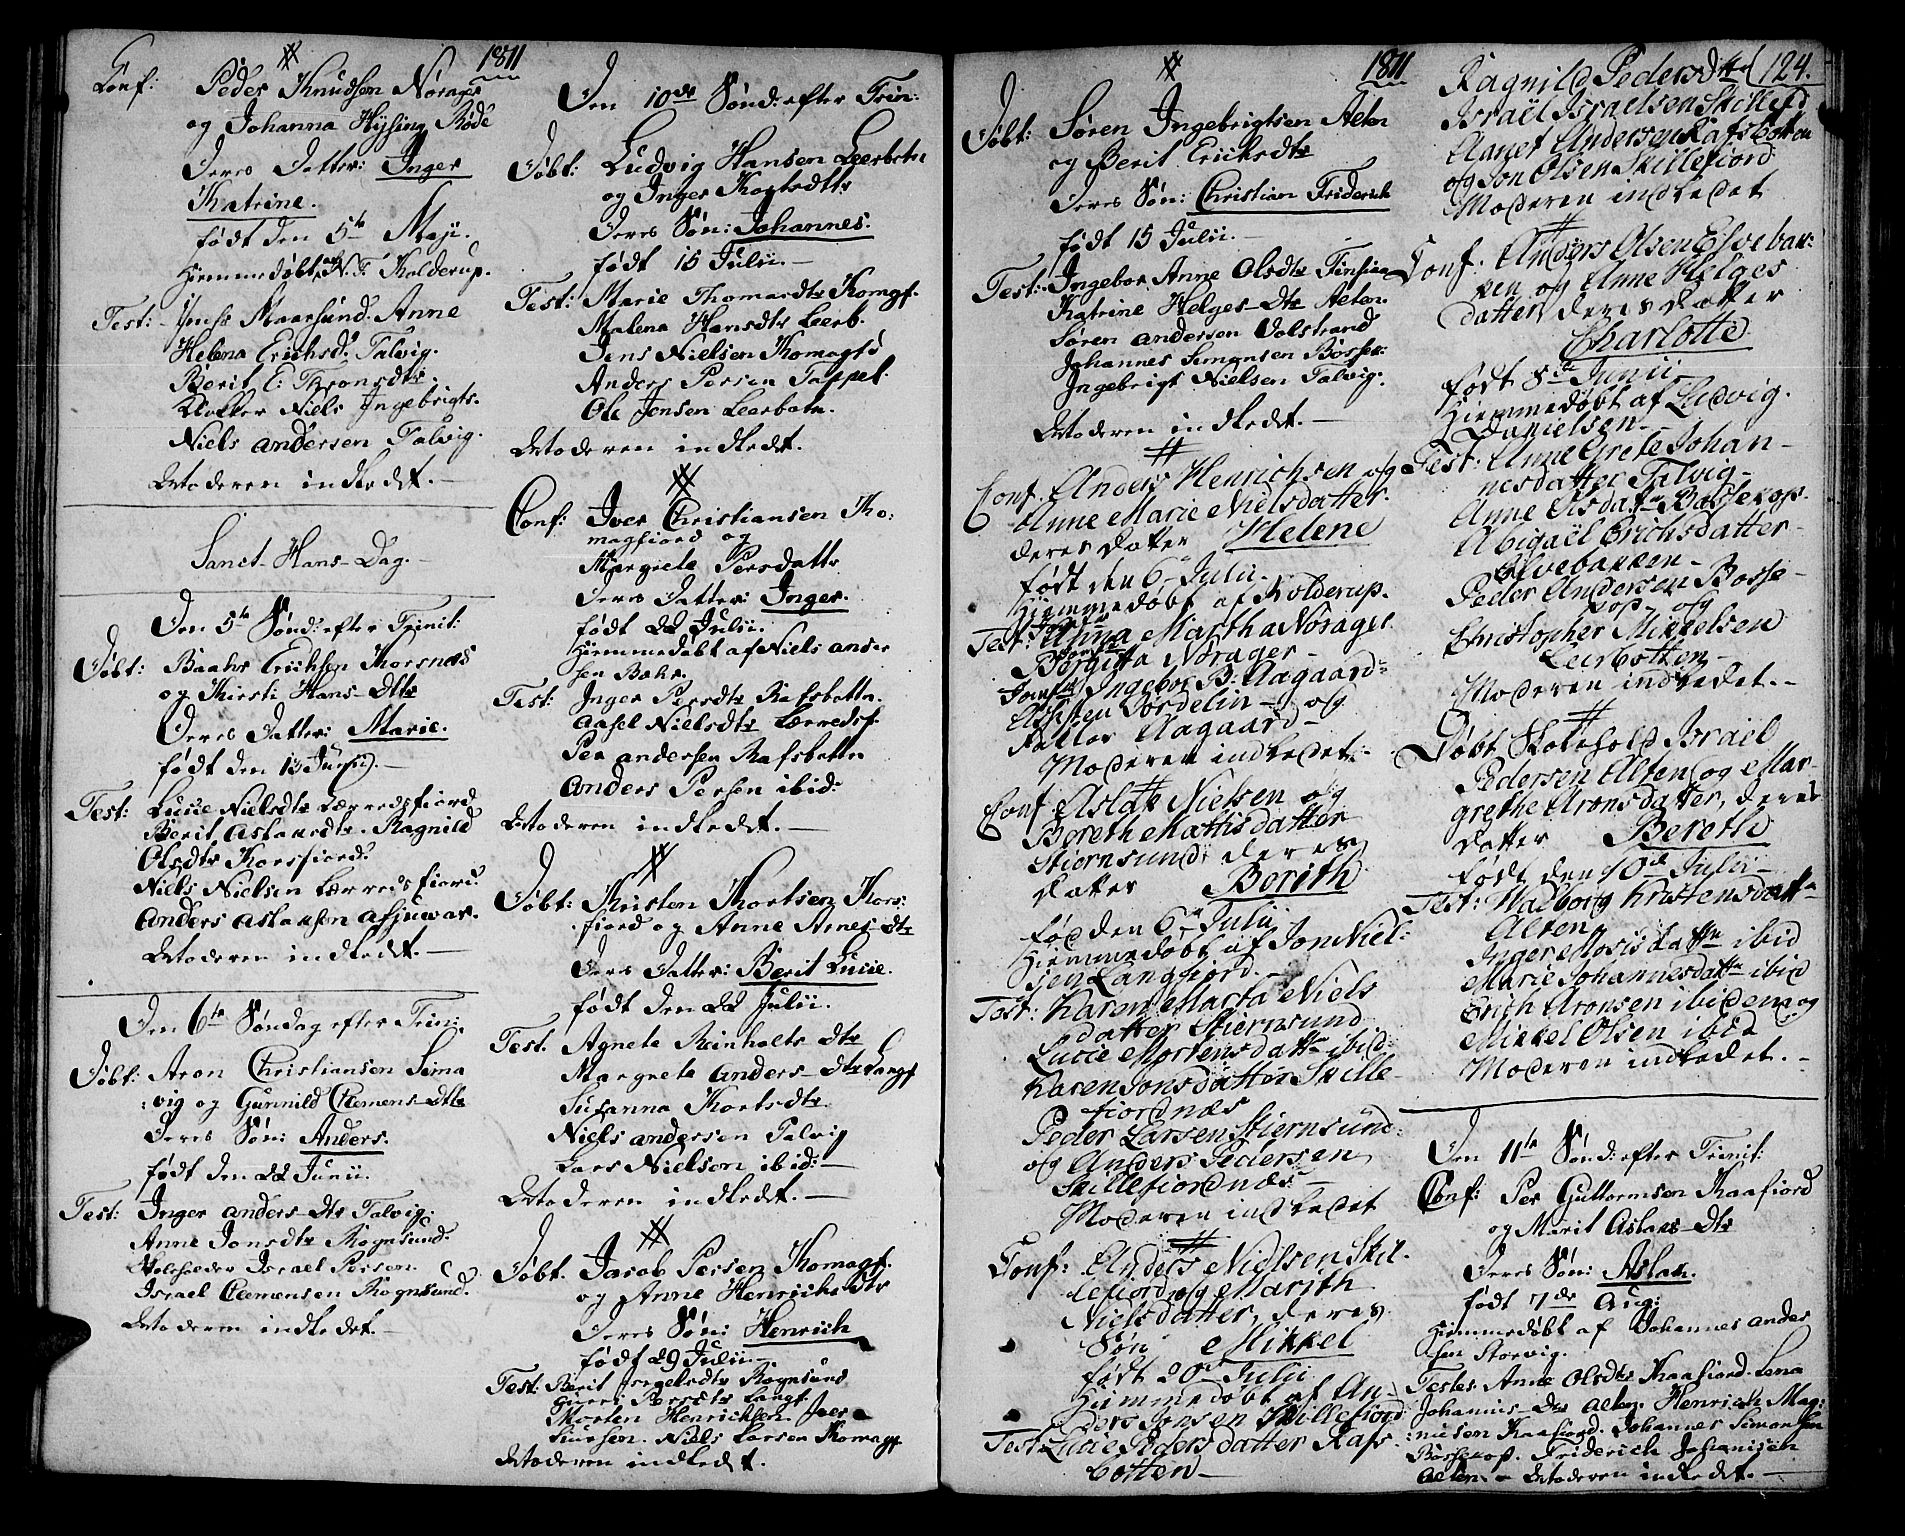 1811
Conf: Peder Knudsen Norager
og Johanna Hysing Røde
Deres Datter: Inger
Katrine.
født den 5te Maji.
Hiemmedøbt af N. F. Kolderup.
Test: Maarsund. Anne
Helena Erichsd. Talvig.
Berit E: Thronsdtr.
Klokker Niels Ingebrigts.
Niels Andersen Talvig.
Moderen indledet.
Sanct Hans-Dag.
Den 5te Sønd: efter Trinit:
Døbt: Erichsen Korsnæs
og Kirsti Hans-Dtr
Deres Datter: Marie.
født den 13 Junii.
Test: Lucie Nielsdtr Lærredsfiord
Berit Aslaksdtr. Ragnild
Olsdtr Korsfiord.
Niels Nielsen Lærredsfiord
Anders Aslaksen
Moderen indledet.
Den 6te Søndag efter Trin:
Døbt: Aron Christiansen Sima
vig og Gunnild Clemens-Dtr
Deres Søn: Anders.
født den 22 Junii.
Test: Inger Anders-Dtr Talvig.
Anne Jonsdtr Rognsund.
Skoleholder Israel Persen.
Israel Clemensen Rognsund.
Moderen indledet.
Den 10de Sønd: efter Trin:
Døbt: Ludvig Hansen Leerbotn
og Inger Kortsdtr
Deres Søn: Johannes.
født 15 Julii.
Test: Marie Thomasdtr Komagf.
Malena Hansdtr Leerb.
Jens Nielsen Komagf
Anders Persen Tappel.
Ole Jensen Leerbotn.
Moderen indledet.
Conf: Iver Christiansen Ko:
magfiord og
Margrete Persdatter
Deres Datter: Inger.
født 22 Julii.
Hiemmedøbt af Niels Ander
sen
Test: Inger Persdtr Rafsbotten.
Nielsdtr Lærredsf.
Per Andersen Rafsbotten
Anders Persen ibid:
Moderen indledet.
Døbt: Kristen Kortsen Kors:
fiord og Anne Arnes-Dtr
Deres Datter: Berit Lucie.
født den 22 Julii.
Test. Agnete Reinholts Dtr
Margrete Anders-Dtr Langf
Susanna Kortsdtr
Niels Andersen Talvig
Lars Nielsen ibid:
Moderen indledet.
Døbt. Jacob Persen Komagf.
og Anne Henrichs Dtr
Deres Søn: Henrich
født 29 Julii.
Test: Berit Rognsund
Persdtr Langf.
Morten Henrichsen. Iver
Siursen. Niels Larsen Komagf
Moderen indledet.
1811
Døbt: Søren Ingebrigtsen Alten
og Berit Erichsdtr
Deres Søn: Christian Friderich
født 15 Julii.
Test: Ingebor Anne Olsdtr
Katrine Helges-Dtr Alten.
Søren Andersen Volstrand
Johannes Simonsen Bosse:
Ingebrigt Nielsen Talvig.
Moderen indledet.
Conf. Anders Henrichsen og
Anne Marie Nielsdatter
deres Datter Helene
født den 6te Julii.
Hiemmedøbt af Kolderup.
Test: Anna Martha Norager
Bergitta Norager
Ingebor B: Aagaard
og
Aagaard
Moderen indledet.
Conf. Aslak Nielsen og
Bereth Mattisdatter
Stiernsund deres
Datter Berith
fød den 6te Julii
Hiemmedøbt af Jon Niel:
sen Langfiord.
Test: Karen Marta Niels
datter Stiernsund
Lucie Mortensdattr ibid:
Karen Jonsdatter Skille
fiordnæs
Peder Larsen Stiernsund
og Anders Pedersen
Skillefiordnæs
Moderen indledet
Conf: Anders Nielsen Skil
lefiord og Marith
Nielsdatter, deres
Søn Mikkel
født 20de Julii
Hiemmedøbt af An
ders Jonsen Skillefiord
Test Lucie Pedersdatter Rafs
botten
124.
Ragnild Pedersdttr
Israël Israelsen Skillefd
Andersen Rafsbotten
og Jon Olsen Skillefiord
Moderen indledet
Conf: Anders Olsen Elvebak:
ken og Anne Helges
datter, deres datter
Charlotte
født 8de Junii
Hiemmedøbt af Ludvig
Danielsen
Test: Anne Grete Johan
nesdatter Talvig
Anne Olsdatr Bossekop
Abigaël Erichsdatter
Elvebakken
Peder Andersen Bosse
kop og
Christopher Mikkelsen
Leerbotten
Moderen indledet.
Døbt Skolehold Israel
Pedersen Alten og Mar
grethe Aronsdatter, deres
Datter Bereth
født den 10de Julii
Test: Walborg Kristensdattr
Alten
Inger Mosisdattr ibid
Marie Johannesdattr ibid
Erich Aronsen ibidem og
Mikkel Olsen ibid
Moderen indledet.
Den 11te Sønd: efter Trinit:
Conf: Per Guttormsen Kaafiord
og Marit Aslaks-Dtr
Deres Søn: Aslak.
født 7de Aug:
Hiemmedøbt af Johannes Ander
sen Storvig.
Testes Anne Olsdtr Kaafiord. Lena
Johannis Dtr Alten. Henrich Mag:
nusen Kaafiord. Johannes Simonsen
Bossekop. Friderich Johannisen
Alten. Moderen indledet.